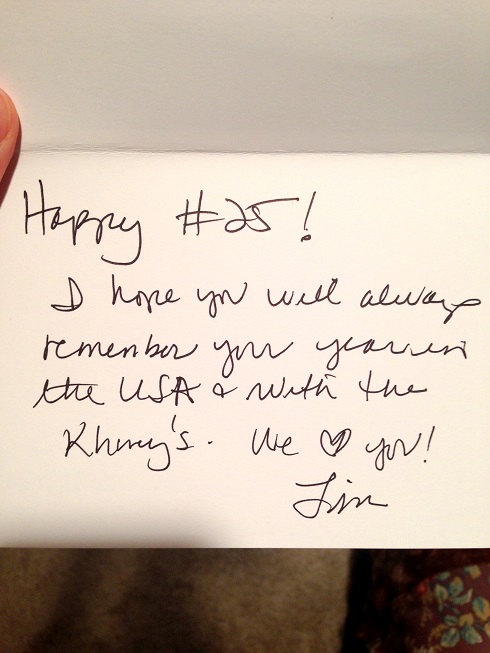 Happy #25!
I hope you will always
remember your year in
the USA & with the
We ♡ you!